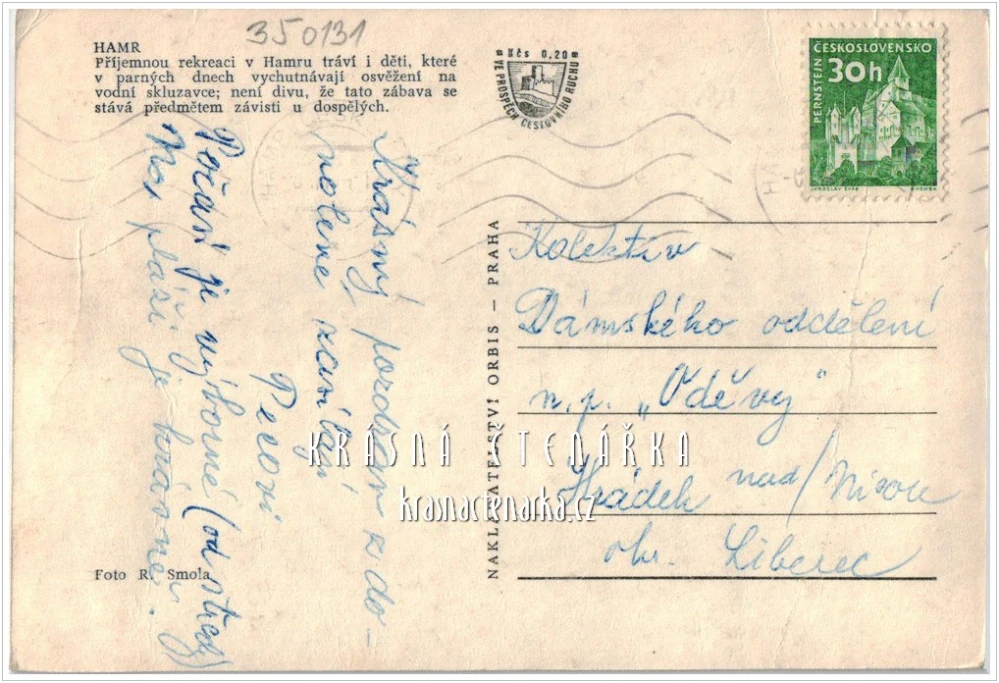 350131
HAMR
Příjemnou rekreaci v Hamru tráví i děti, které
v parných dnech vychutnávají osvěžení na
vodní skluzavce; není divu, že tato zábava se
stává předmětem závisti u dospělých.
Kčs 0,20
VE PROSPĚCH CESTOVNÍHO RUCHU
ČESKOSLOVENSKO
30h
PERNŠTEJN
JAROSLAV ŠVÁB
Krásný pozdrav z do-
volené zasílají
Pecovi
Počasí je výborné (od středy)
Na pláži je krásně.
NAKLADATELSTVÍ ORBIS — PRAHA
Kolektiv
Dámského oddělení
n.p. „Oděvy"
Hrádek nad/Nisou
okr. Liberec
KRÁSNÁ ČTENÁŘKA
krasnactenarka.cz
Foto R. Smola